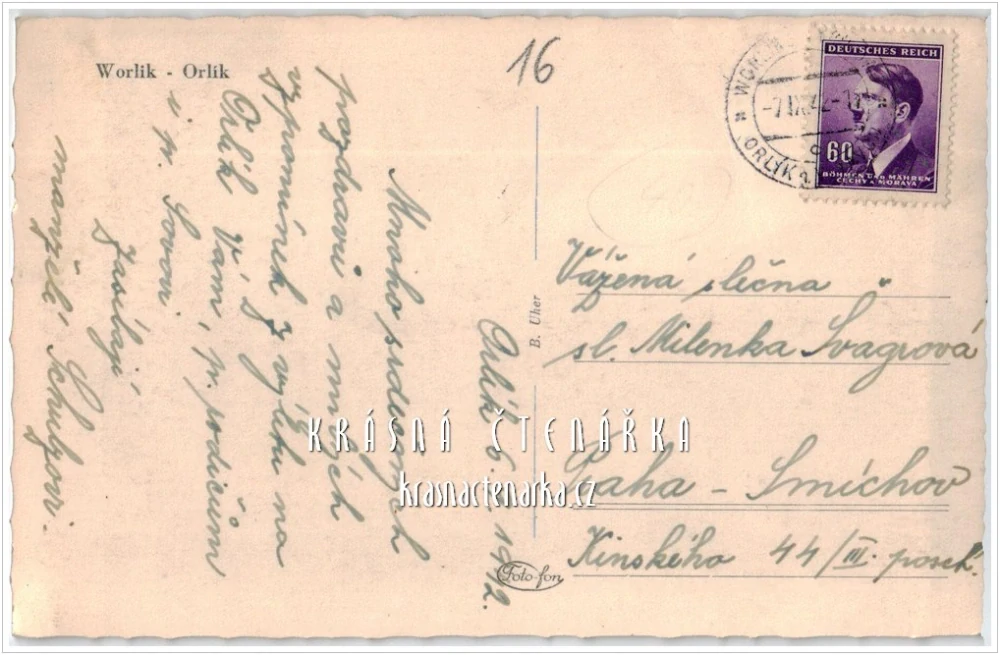 Worlik - Orlík
16
WOR
-7.IX.42-1
ORLÍK
DEUTSCHES REICH
60
BÖHMEN UND MÄHREN
ČECHY A MORAVA
Orlík 6. 19 2.
Mnoho srdečných
pozdravů a milých
vzpomínek z výletu na
Orlík Vám, p. rodičům
i p.
Zasílají
manželé
B. Uher
Foto-fon
Vážená slečna
sl. Milenka Švagrová
Praha - Smíchov
Kinského 44/III. posch.
KRÁSNÁ ČTENÁŘKA
krasnactenarka.cz